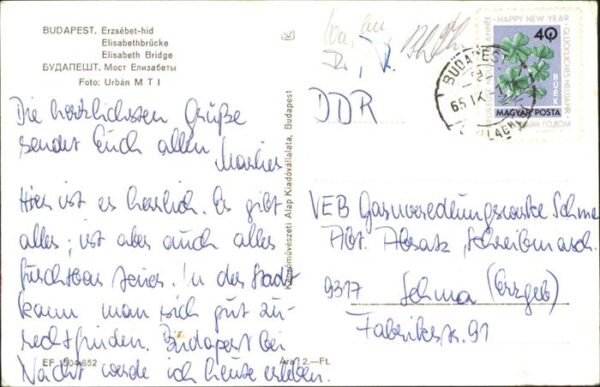 BUDAPEST. Erzsébet-híd
Elisabethbrücke
Elisabeth Bridge
БУДАПЕШТ. Мост Елизабеты
Foto: Urbán M T I
Die herzlichsten Grüße
sendet Euch allen Marlies
Hier ist es herrlich. Es gibt
alles, ist aber auch alles
furchtbar teuer. In der Stadt
kann man sich gut zu-
rechtfinden. Budapest bei
Nacht werde ich heute erleben.
EF 652
Ára: 2.—Ft.
Képzőművészeti Alap Kiadóvállalata, Budapest
DDR
HAPPY NEW YEAR
GLÜCKLICHES NEUJAHR
40
BUÉK
MAGYAR POSTA
BUDAPEST
65 IX
VEB Gasmveredlungswerke Schma
Abt. Absatz, Schreibmasch.
9317 Sehma (Erzgeb)
Fabrikstr. 91